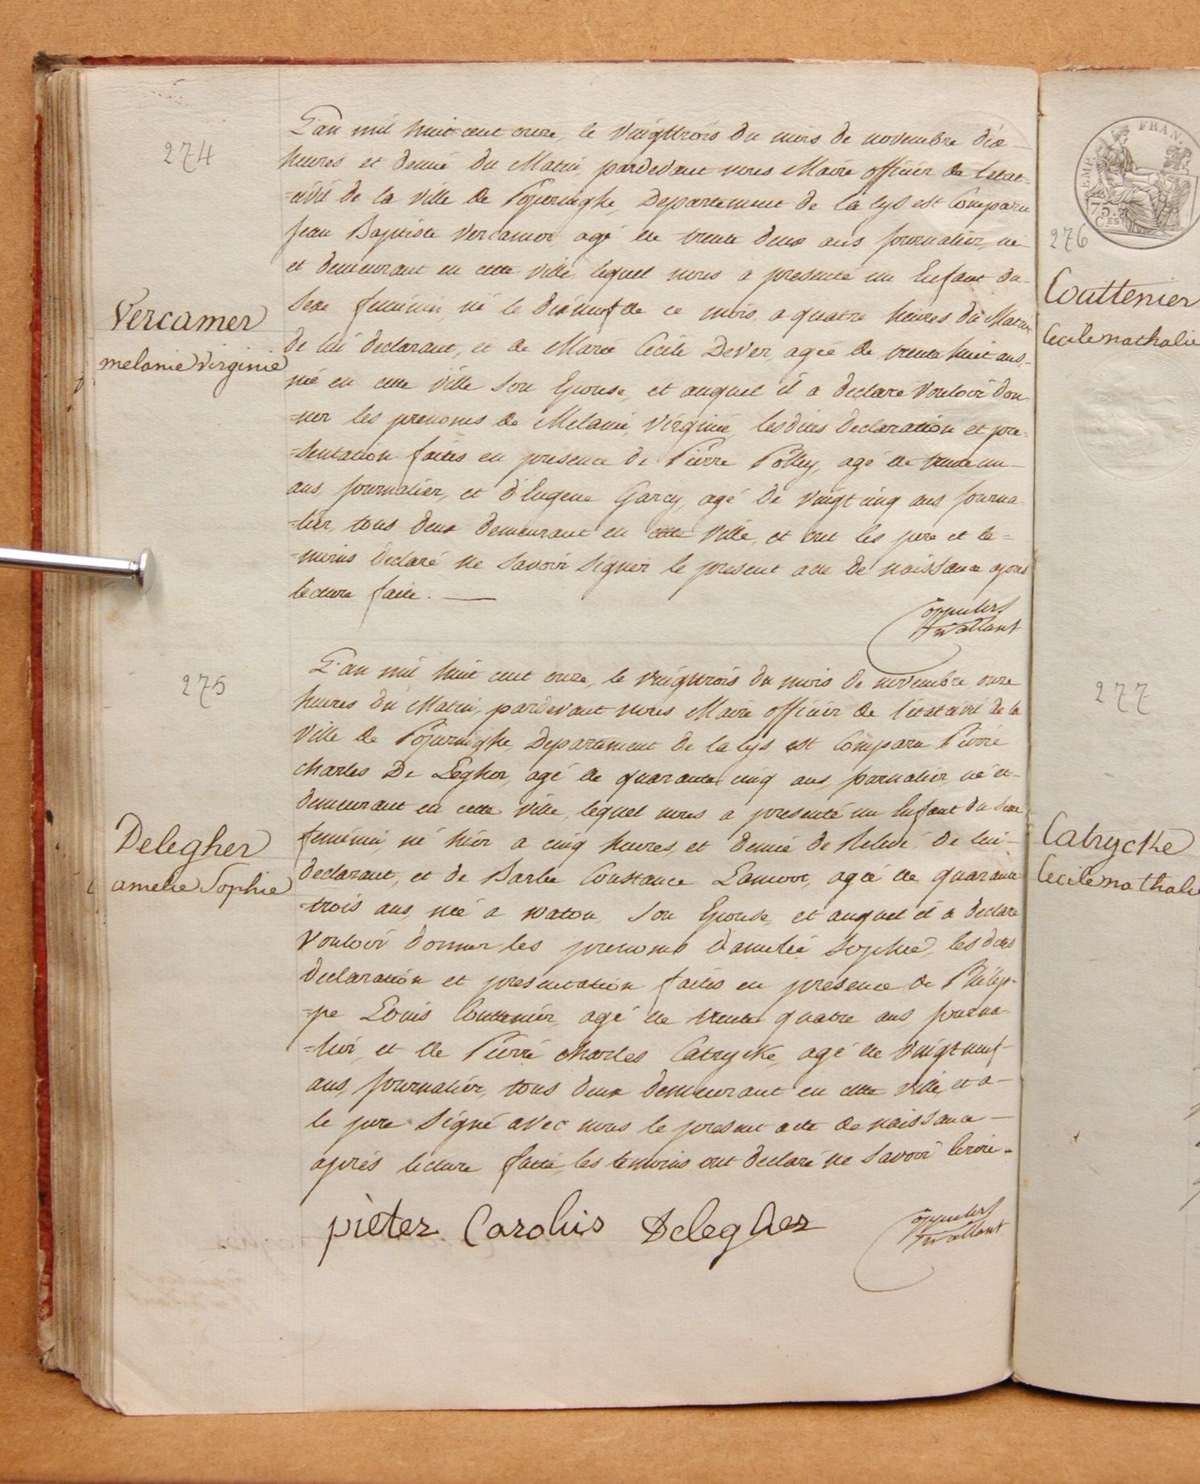 274
L'an mil huit cent onze, le vingttrois du mois de novembre dix
heures et demie du Matin, pardevant nous Maire officier de letat-
=civil de la ville de Poperinghe, Departement de la lys est Comparu
Jean Baptiste Vercamer agé de trente deux ans journalier, né
et demeurant en cette ville lequel nous a presenté un Enfant du
Sexe feminin, né le dixneuf de ce mois, a quatre heures du Matin
de lui declarant, et de Marie Cecile Dever, agée de trente huit ans,
née en cette ville Son Epouse, et auquel il a declaré vouloir don
=ner les prenoms de Melanie, Virginie, lesdites declaration et pre-
=sentation faites en presence de Pierre Polley, agé de trente un
ans, journalier, et d'Eugene Garcy, agé de vingt cinq ans journa-
=lier, tous deux demeurant en cette ville, et ont les pere et te-
=moins declaré ne Savoir Signer le present acte de naissance apres
lecture faite.
Vercamer
melanie Virginie
275
L'an mil huit cent onze, le vingttrois du mois de novembre, onze
heures du Matin, pardevant nous Maire officier de letat civil de la
ville de Poperinghe, Departement de la lys est Comparu Pierre
Charles De Legher, agé de quarante cinq ans journalier, né et
demeurant en cette ville, lequel nous a presenté un Enfant du Sexe
feminin né hier a cinq heures et demie de Relevé, de lui
declarant, et de Barbe Constance Lamoot, agée de quarante
=trois ans, née a watou, Son Epouse, et auquel il a declaré
Vouloir donner les prenoms d'amelie Sophie, les dites
declaration et presentation faites en presence de Philip-
=pe Louis Couttenier, agé de trente quatre ans journa-
=lier, et de Pierre Charles Catrycke, agé de vingt neuf
ans, journalier, tous deux demeurant en cette ville, et a
le pere Signé avec nous le present acte de naissance
après lecture faite, les temoins ont declaré ne Savoir Ecrire.
Delegher
amelie Sophie
pieter Carolus Delegher
276
Couttenier
Cecile nathalie
277
Catrycke
Cecile nathalie